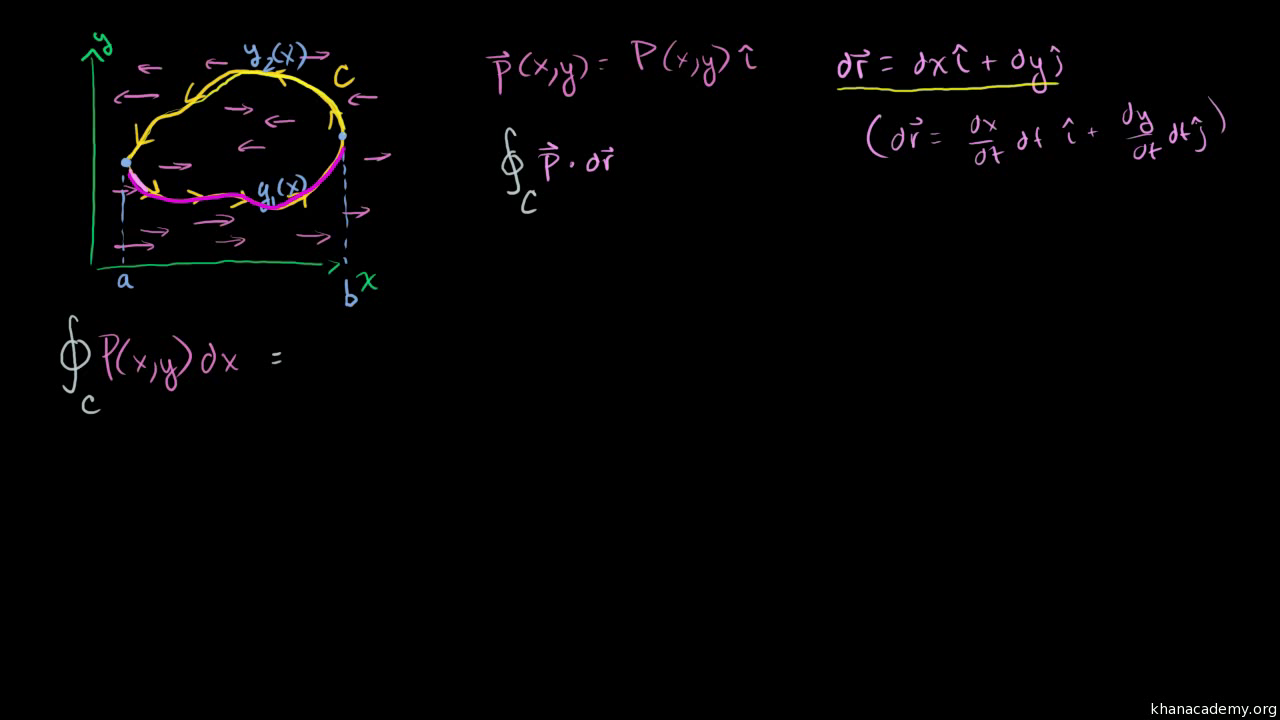 y
y₂(x)
C
y₁(x)
a
b
x
P⃗(x,y) = P(x,y) î
dr⃗ = dx î + dy ĵ
(dr⃗ = dx/dt dt î + dy/dt dt ĵ)
∮_C P⃗ · dr⃗
∮_C P(x,y) dx =
khanacademy.org